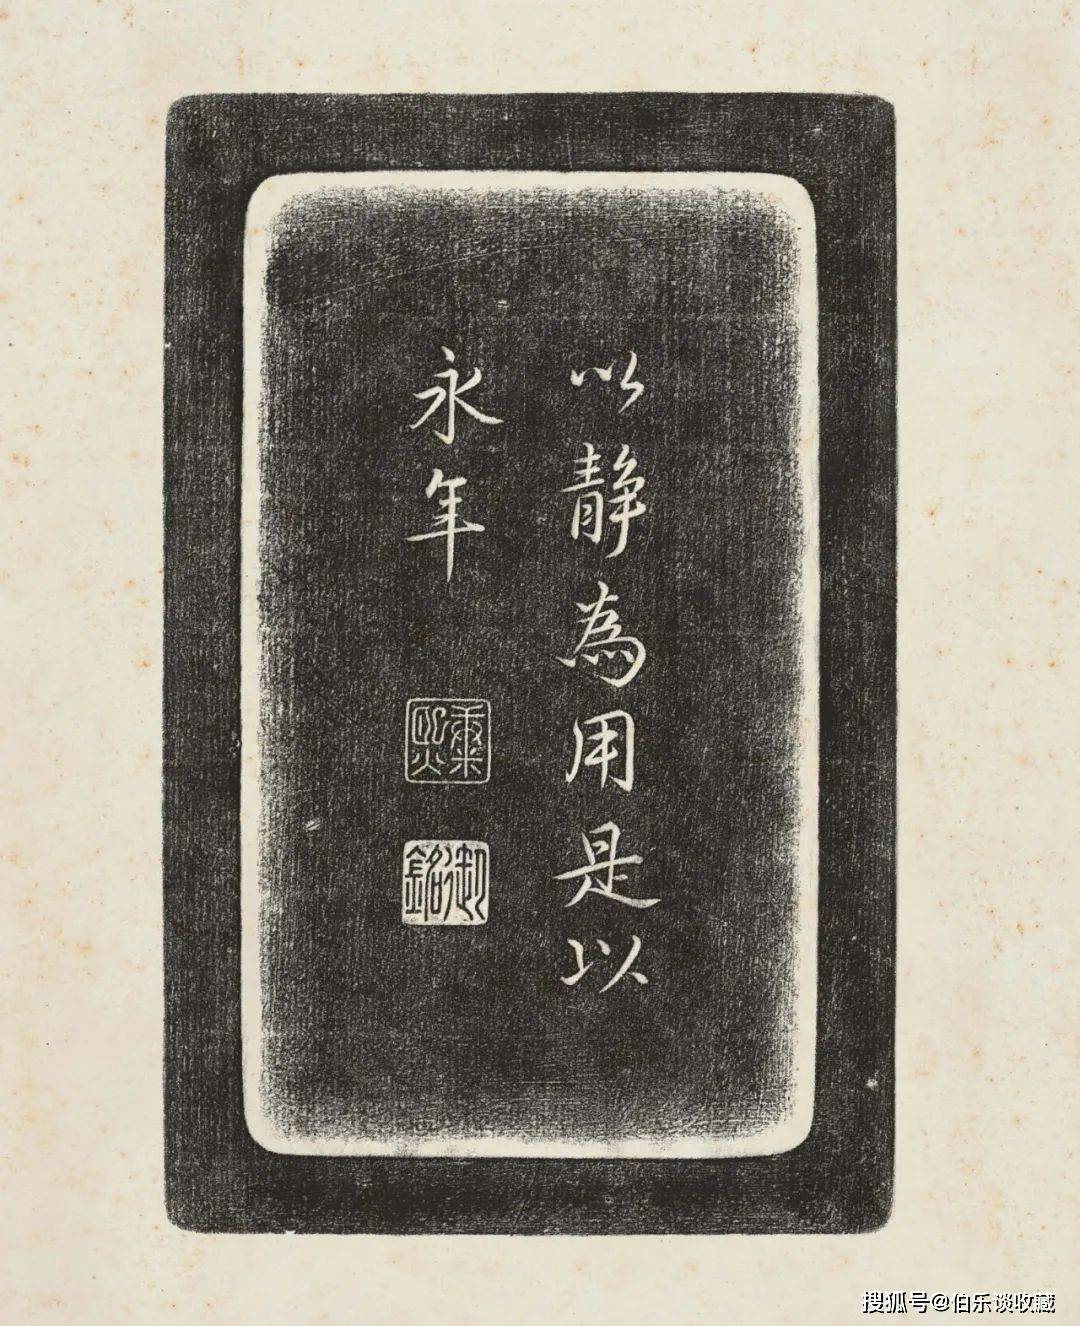 以静為用是以
永年
康熙
御銘
搜狐号@伯乐谈收藏